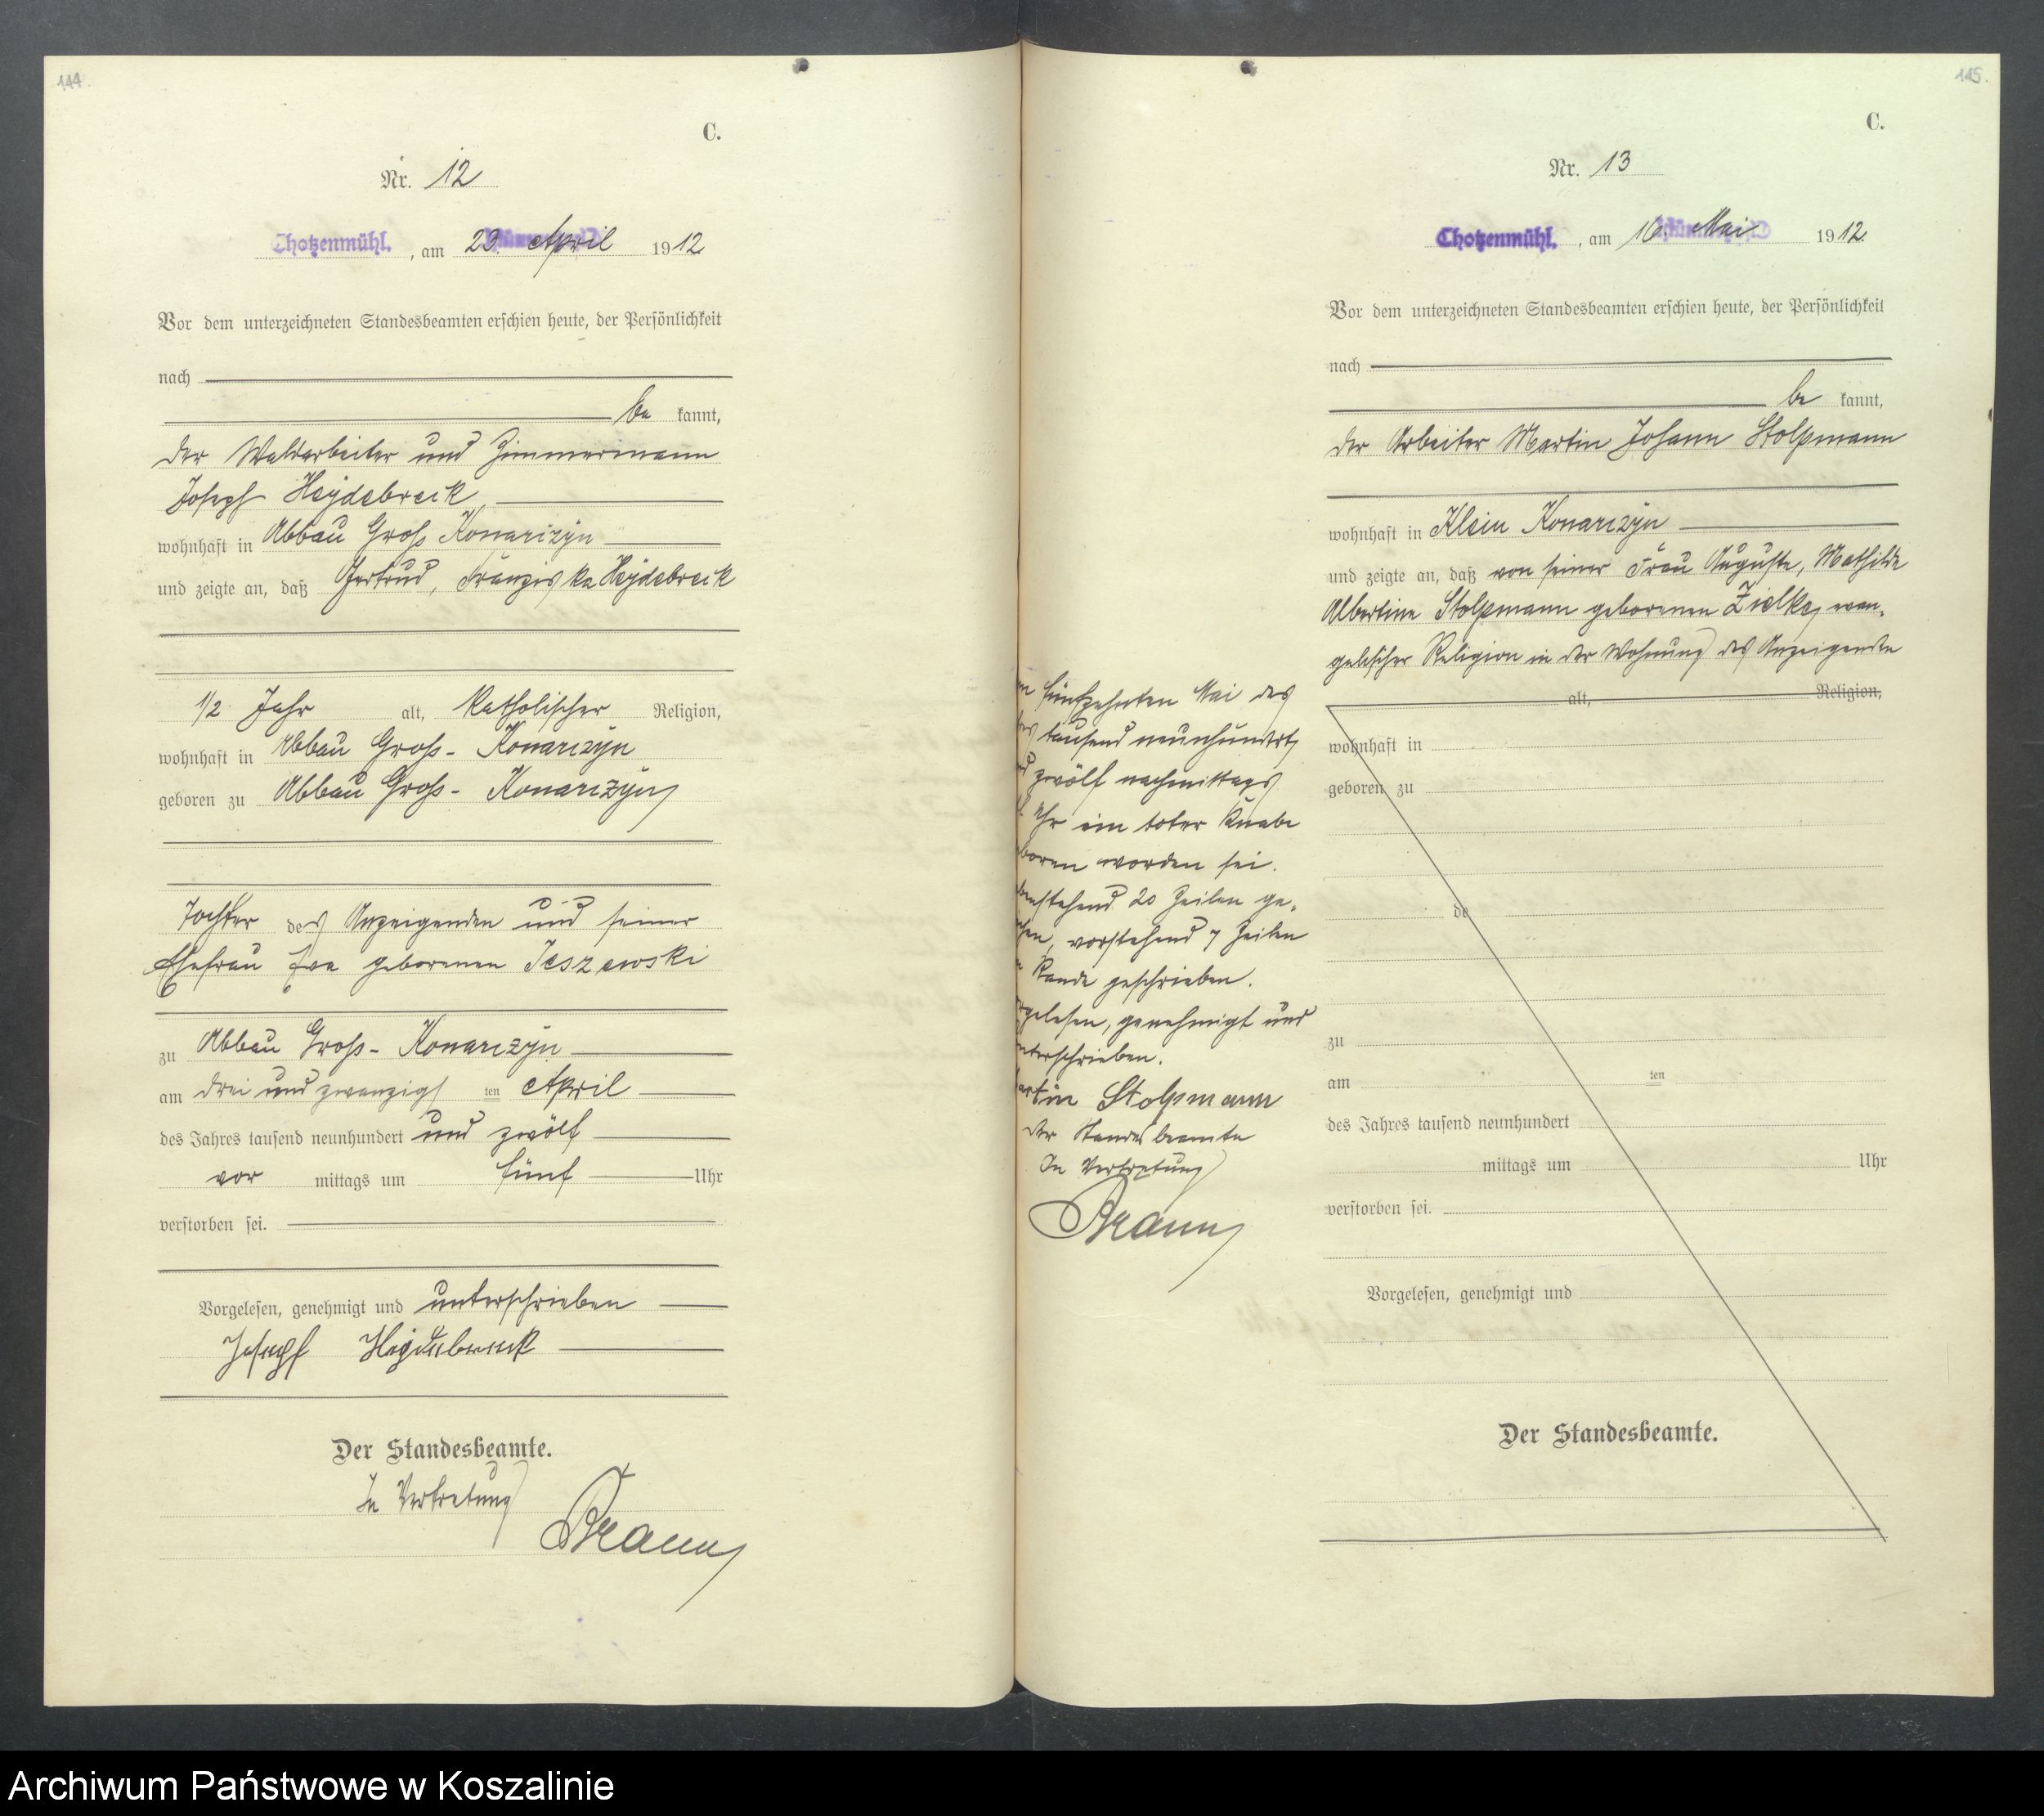 144.
C.
Nr. 12
Chotzenmühl. , am 23. April 1912
Vor dem unterzeichneten Standesbeamten erschien heute, der Persönlichkeit
nach
be kannt,
der Waldarbeiter und Zimmermann
Joseph Heydebreck
wohnhaft in Abbau Groß Konarczyn
und zeigte an, daß Gertrud, Franziska Heydebreck
1/2 Jahr alt, katholischer Religion,
wohnhaft in Abbau Groß- Konarczyn
geboren zu Abbau Groß- Konarczyn,
Tochter des Anzeigenden und seiner
Ehefrau Eva geborenen Jeszewski
zu Abbau Groß- Konarczyn
am drei und zwanzigsten April
des Jahres tausend neunhundert und zwölf
vor mittags um fünf Uhr
verstorben sei.
Vorgelesen, genehmigt und unterschrieben
Joseph Heydebreck
Der Standesbeamte.
In Vertretung
Braun
115.
C.
Nr. 13
Chotzenmühl. , am 16. Mai 1912.
Vor dem unterzeichneten Standesbeamten erschien heute, der Persönlichkeit
nach
be kannt,
der Arbeiter Martin Johann Stolpmann
wohnhaft in Klein Konarczyn
und zeigte an, daß von seiner Frau Auguste, Mathilde
Albertine Stolpmann geborenen Zielke, evan-
gelischer Religion in der Wohnung des Anzeigenden
alt, Religion,
wohnhaft in
geboren zu
de
zu
am ten
des Jahres tausend neunhundert
mittags um Uhr
verstorben sei.
Vorgelesen, genehmigt und
Der Standesbeamte.
fünfzehnten Mai des
tausend neunhundert
zwölf nachmittags
Uhr ein toter Knabe
boren worden sei.
benstehend 20 Zeilen ge-
chen, vorstehend 7 Zeilen
Rande geschrieben.
rgelesen, genehmigt und
nterschrieben.
artin Stolpmann
Der Standesbeamte
In Vertretung
Braun
Archiwum Państwowe w Koszalinie